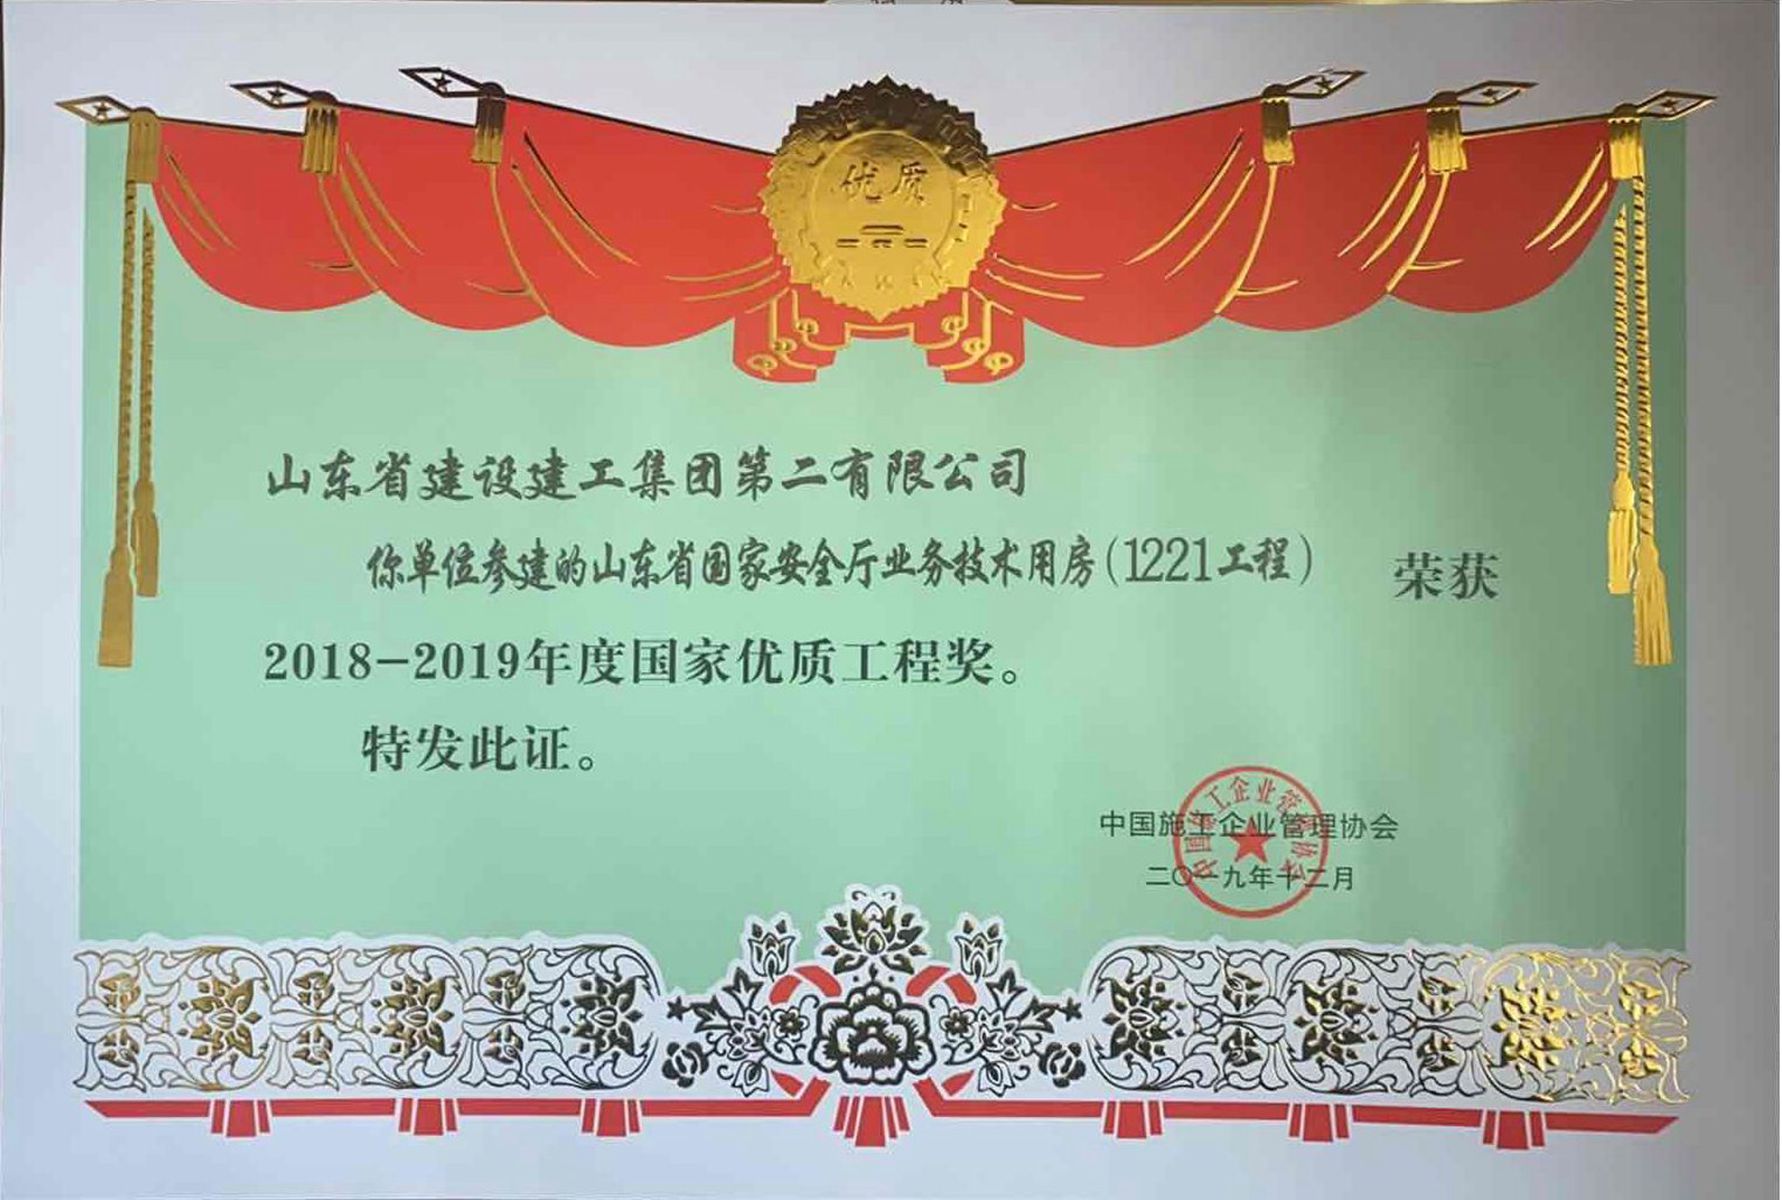 优质
山东省建设建工集团第二有限公司
你单位参建的山东省国家安全厅业务技术用房(1221工程) 荣获
2018-2019年度国家优质工程奖。
特发此证。
中国施工企业管理协会
二〇一九年十二月
中国施工企业管理协会